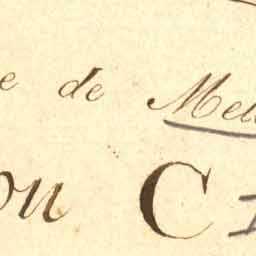 e de Mel
ou C